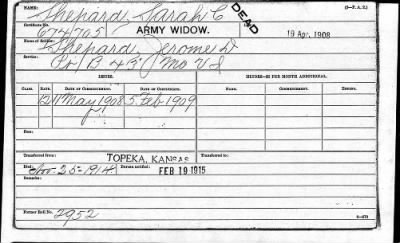 NAME: Shepard, Sarah C. DEAD (3-F.A.S.)
Certificate No. 674705 ARMY WIDOW. 19 Apr. 1908
Name of Soldier: Shepard, Jerome D.
Service: B 43 Mo V I
ISSUE. ISSUE—$2 PER MONTH ADDITIONAL.
CLASS. RATE. DATE OF COMMENCEMENT. DATE OF CERTIFICATE. COMMENCEMENT. ISSUED.
12 May 1908 5 Feb 1909
Transferred from: TOPEKA, KANSAS Transferred to:
Died: Nov-25-1914 Bureau notified: FEB 19 1915
Remarks:
Former Roll No. 2952